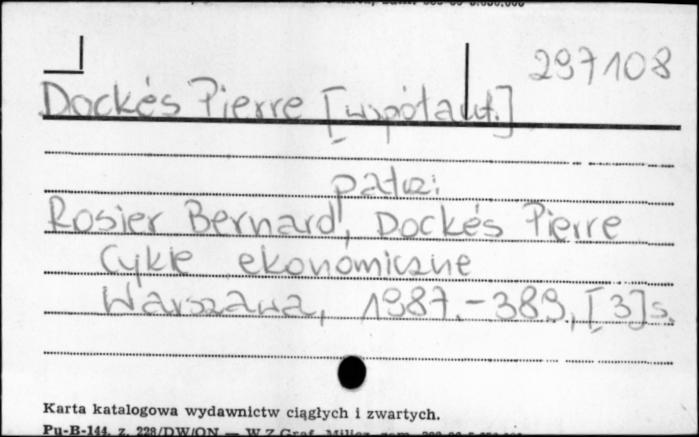 297108
Dockés Pierre [współaut.]
patrz:
Rosier Bernard, Dockés Pierre
Cykle ekonomiczne
Warszawa, 1987. - 389, [3] s.
Karta katalogowa wydawnictw ciągłych i zwartych.
Pu-B-144, z. 228/DW/ON — W.Z.Graf.